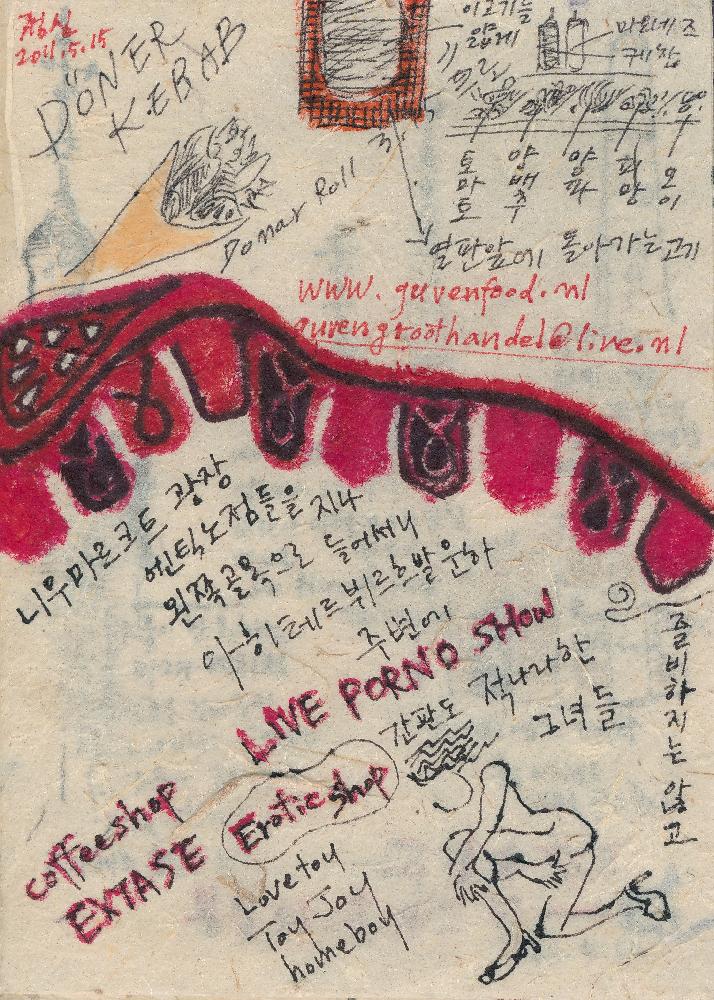 점심
2011.5.15
DÖNER
KEBAB
이고기를
얇게
마요네즈
케찹
토마토
양배추
양파
피망
오이
Donar Roll
열판앞에 돌아가는고기
www.guvenfood.nl
gurengroothandel@live.nl
니우마르크트 광장
엔틱노점들을 지나
왼쪽골목으로 들어서니
아히테르뷔르흐발운하
주변에
LIVE PORNO SHOW
간판도 적나라한
그녀들
즐비하지는 않고
coffeeshop
EXTASE
Erotic shop
Love toy
Toy Joy
homeboy